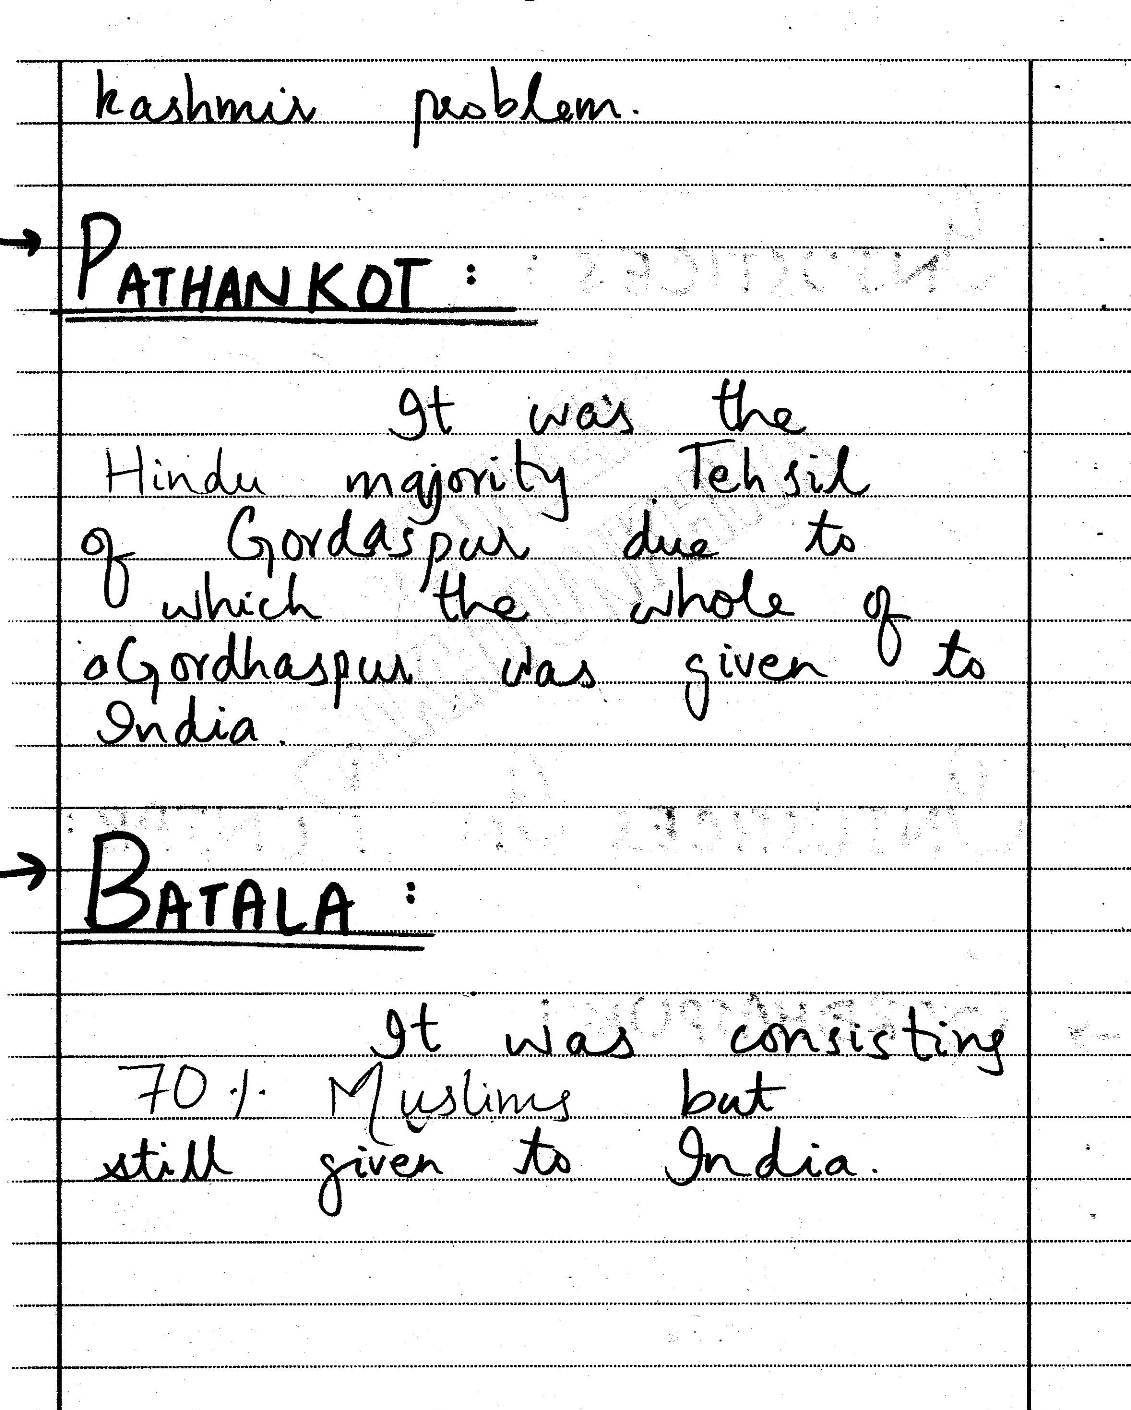 kashmir problem.
→ PATHANKOT :
It was the
Hindu majority Tehsil
of Gordaspur due to
which the whole of
Gordhaspur was given to
India.
→ BATALA :
It was consisting
70% Muslims but
still given to India.